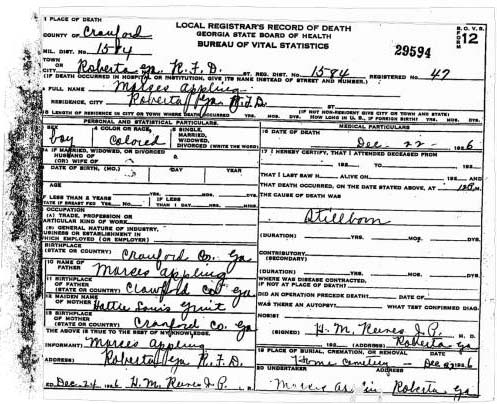 1 PLACE OF DEATH
LOCAL REGISTRAR'S RECORD OF DEATH
COUNTY OF Crawford
GEORGIA STATE BOARD OF HEALTH
BUREAU OF VITAL STATISTICS
B.O.V.S. FORM 12
MIL. DIST. NO. 1584
29594
TOWN OR CITY Roberta Ga. R.F.D. ST. REG. DIST. NO. 1584 REGISTERED NO. 47
(IF DEATH OCCURRED IN HOSPITAL OR INSTITUTION, GIVE ITS NAME INSTEAD OF STREET AND NUMBER.)
FULL NAME Marses Appling
RESIDENCE, CITY Roberta Ga R.F.D. ST.
(IF NOT RESIDENT GIVE CITY OR TOWN AND STATE)
LENGTH OF RESIDENCE IN CITY OR TOWN WHERE DEATH OCCURRED YRS. MOS. DYS. HOW LONG IN U. S. IF FOREIGN BIRTH? YRS. MOS. DYS.
PERSONAL AND STATISTICAL PARTICULARS.
MEDICAL PARTICULARS
SEX boy
4 COLOR OR RACE, colored
5 SINGLE, MARRIED, WIDOWED, DIVORCED (WRITE THE WORD)
16 DATE OF DEATH
Dec 22 1926
5A IF MARRIED, WIDOWED OR DIVORCED
HUSBAND OF
(OR) WIFE OF
17 I HEREBY CERTIFY, THAT I ATTENDED DECEASED FROM
6 DATE OF BIRTH, (MO.) DAY YEAR
THAT I LAST SAW H ALIVE ON
AND
THAT DEATH OCCURRED, ON THE DATE STATED ABOVE, AT
THE CAUSE OF DEATH WAS
AGE
IF LESS THAN 2 YEARS
STATE IF BREAST FED YES NO
IF LESS THAN 1 DAY HRS. MIN.
Stillborn
OCCUPATION
(A) TRADE, PROFESSION OR PARTICULAR KIND OF WORK
(B) GENERAL NATURE OF INDUSTRY, BUSINESS OR ESTABLISHMENT IN WHICH EMPLOYED (OR EMPLOYER)
(DURATION) YRS. MOS. DYS.
CONTRIBUTORY (SECONDARY)
BIRTHPLACE (STATE OR COUNTRY) Crawford Co. Ga
(DURATION) YRS. MOS. DYS.
10 NAME OF FATHER Marses Appling
WHERE WAS DISEASE CONTRACTED, IF NOT AT PLACE OF DEATH?
11 BIRTHPLACE OF FATHER (STATE OR COUNTRY) Crawford Co Ga
DID AN OPERATION PRECEDE DEATH? DATE OF
12 MAIDEN NAME OF MOTHER Hattie Louis
WAS THERE AN AUTOPSY. WHAT TEST CONFIRMED DIAGNOSIS?
13 BIRTHPLACE OF MOTHER (STATE OR COUNTRY) Crawford Co. Ga
(SIGNED) H. M. J. P. M. D.
THE ABOVE IS TRUE TO THE BEST OF MY KNOWLEDGE.
(ADDRESS) Roberta Ga
INFORMANT) Marses Appling
ADDRESS) Roberta Ga R.F.D.
19 PLACE OF BURIAL, CREMATION, OR REMOVAL DATE
Home cemetery Dec 23 1926
FILED Dec 24 1926 H. M. J. P. L. R.
20 UNDERTAKER ADDRESS
Roberta Ga